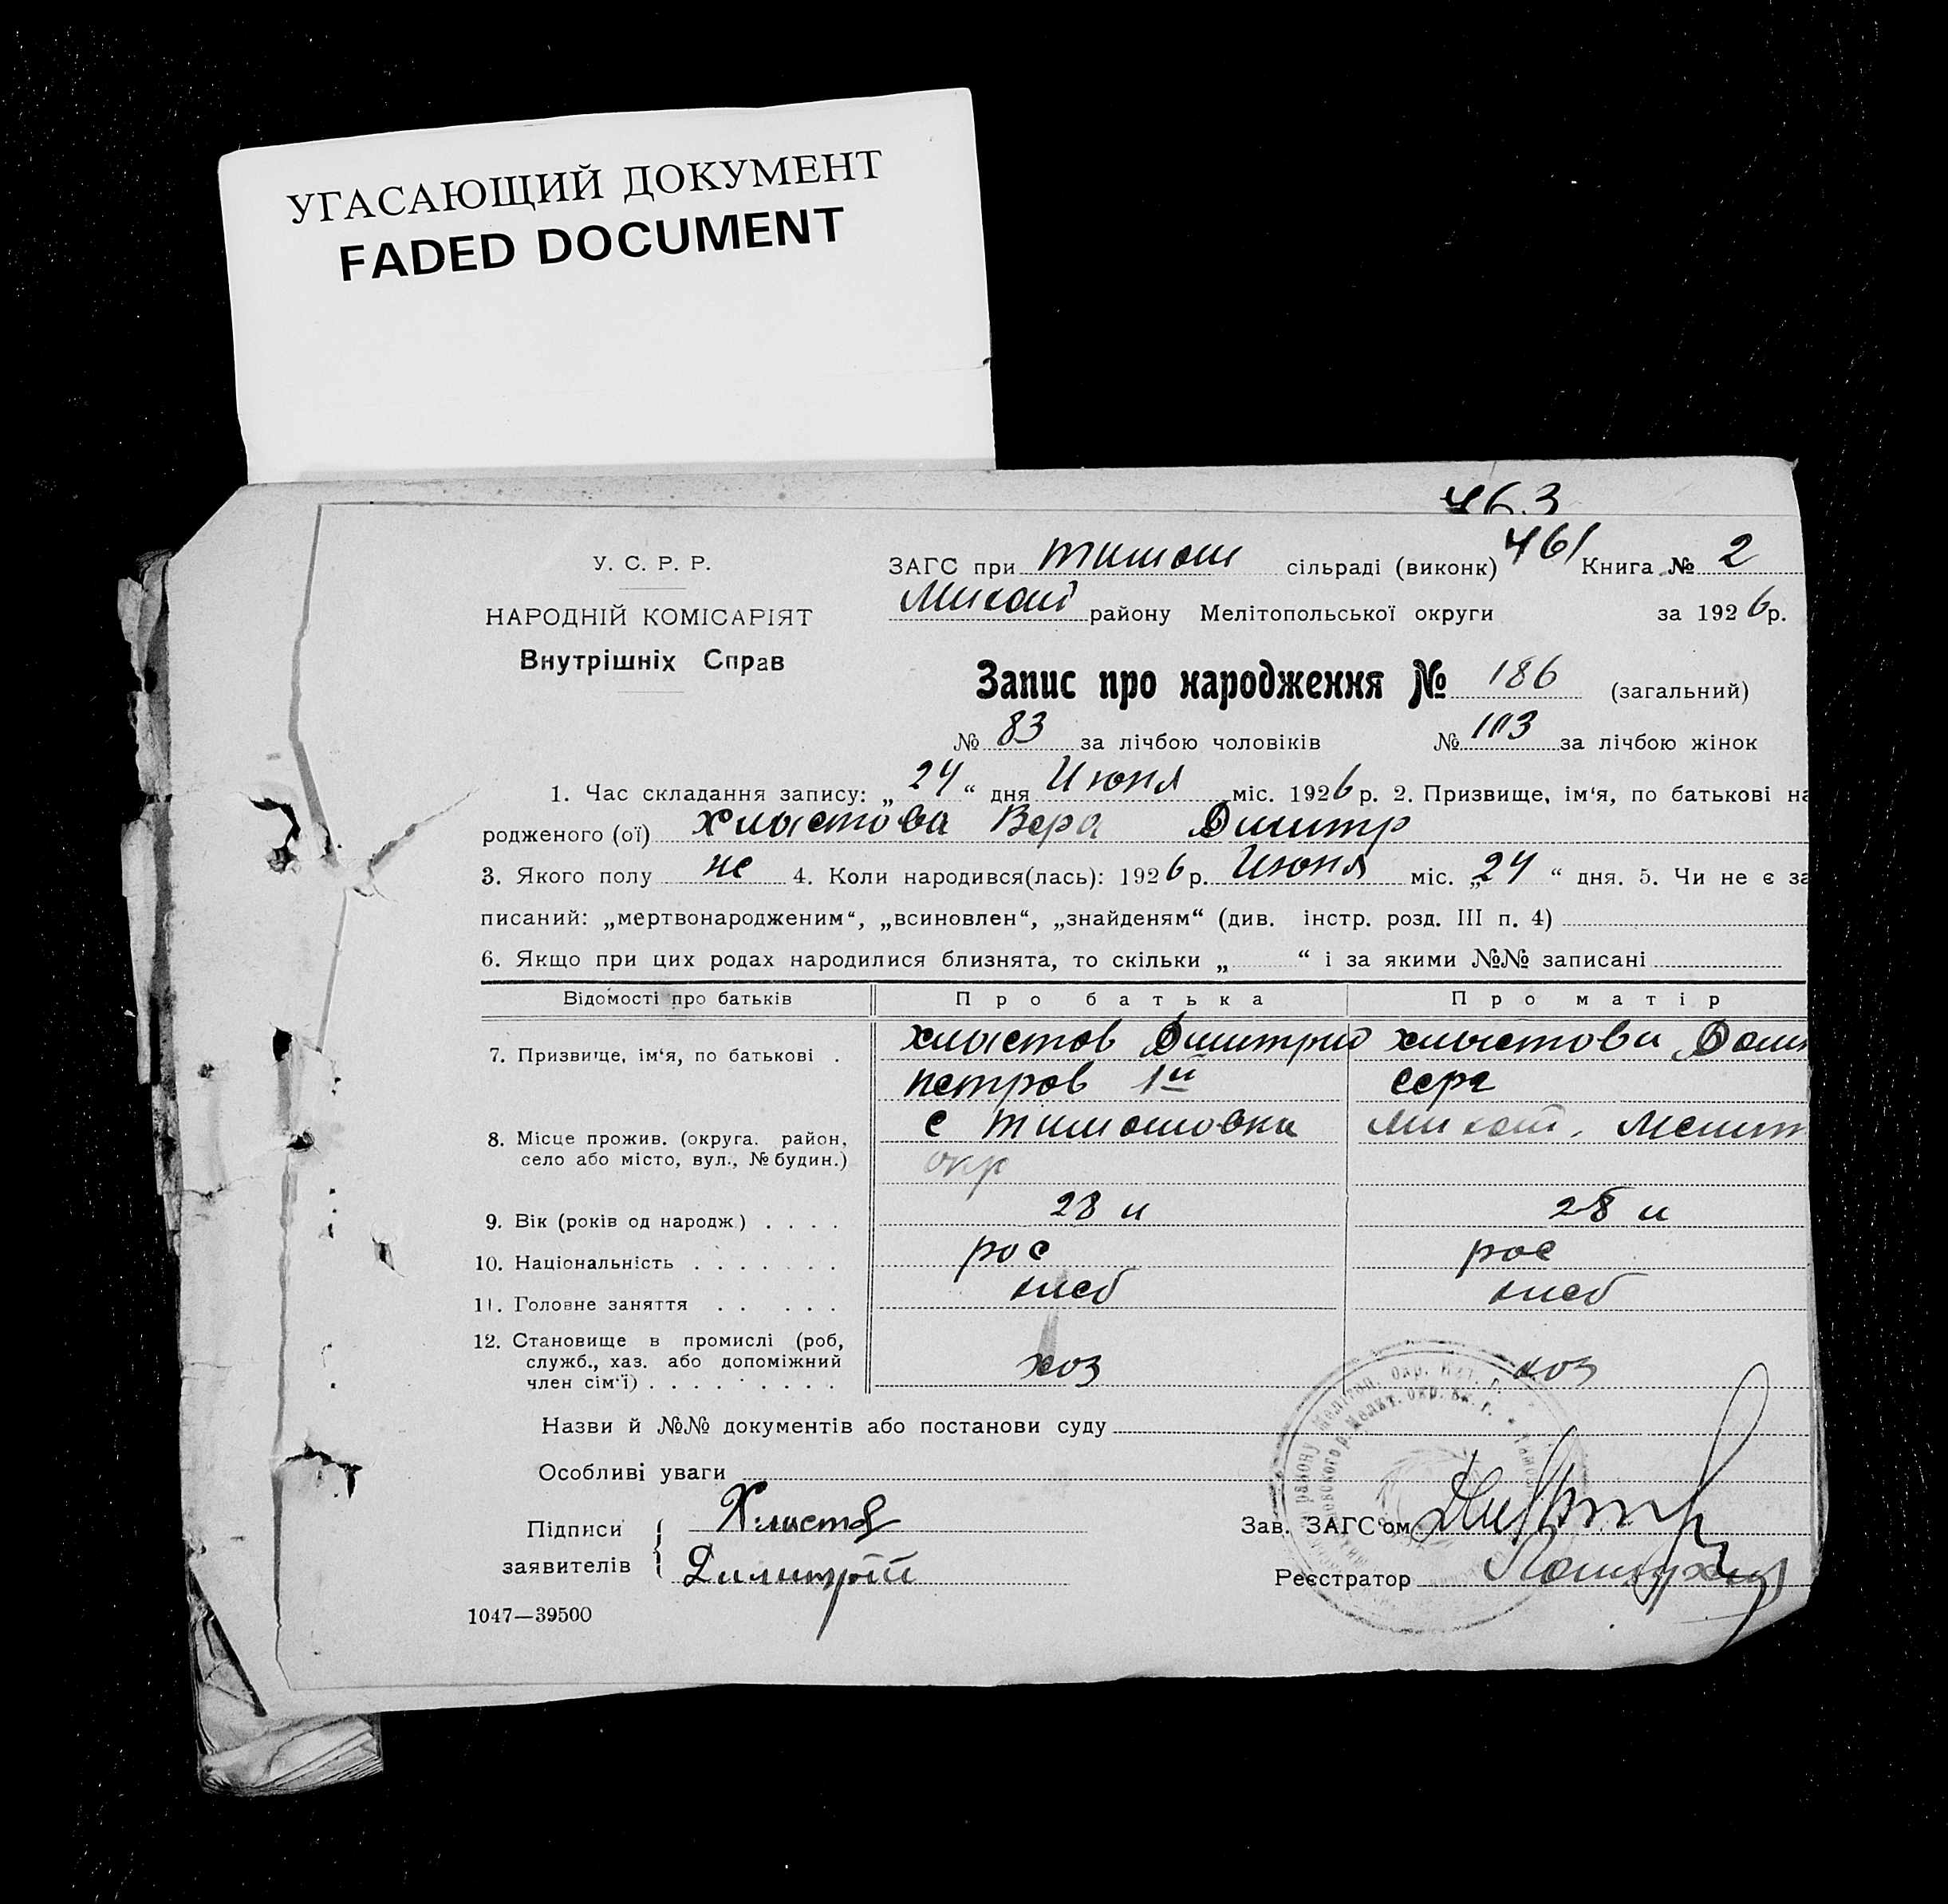 УГАСАЮЩИЙ ДОКУМЕНТ
FADED DOCUMENT
463
461
У. С. Р. Р.
НАРОДНІЙ КОМІСАРІЯТ
Внутрішніх Справ
ЗАГС при Тимош сільраді (виконк) Книга № 2
району Мелітопольської округи за 1926 р.
Запис про народження № 186 (загальний)
№ 83 за лічбою чоловіків № 103 за лічбою жінок
1. Час складання запису: „24“ дня Июня міс. 1926 р. 2. Призвище, ім‘я, по батькові на
родженого (ої) Хлыстова Вера Димитр
3. Якого полу же 4. Коли народився(лась): 1926 р. Июня міс. „24“ дня. 5. Чи не є за
писаний: „мертвонародженим“, „всиновлен“, „знайденям“ (див. інстр. розд. III п. 4)
6. Якщо при цих родах народилися близнята, то скільки „ “ і за якими №№ записані
Відомості про батьків Про батька Про матір
7. Призвище, ім‘я, по батькові . Хлыстов Димитрий Хлыстова
петров 1й серг
8. Місце прожив. (округа, район, село або місто, вул., № будин.) с Тимошовка Мелит
окр
9. Вік (років од народж.) . . . . 28 л 28 л
10. Національність . . . . . . . рос рос
11. Головне заняття . . . . . хлеб хлеб
12. Становище в промислі (роб, служб., хаз. або допоміжний член сім‘ї) . . . . . . . . . хоз хоз
Назви й №№ документів або постанови суду
Особливі уваги
Підписи заявителів Хлистов
Димитрій
Зав. ЗАГС‘ом
Реєстратор
1047—39500